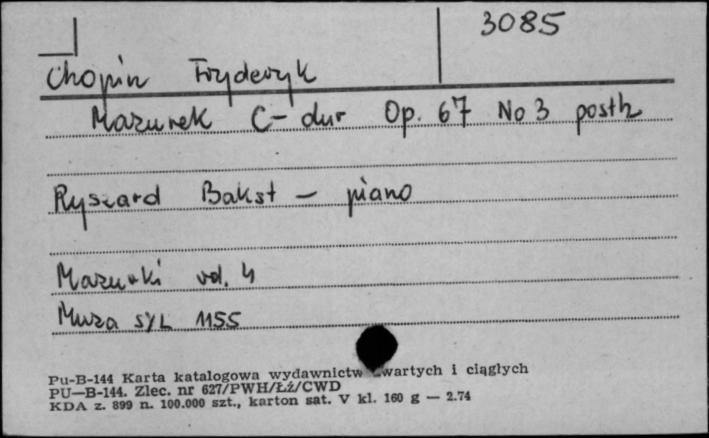 3085
Chopin Fryderyk
Mazurek C-dur Op. 67 No 3 posth
Ryszard Bakst – piano
Mazurki vol. 4
Muza SXL 1155
Pu-B-144 Karta katalogowa wydawnictw zwartych i ciągłych
PU—B-144. Zlec. nr 627/PWH/ŁŻ/CWD
KDA z. 899 n. 100.000 szt., karton sat. V kl. 160 g — 2.74